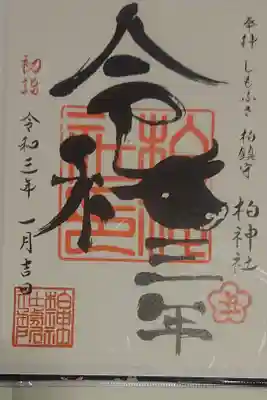 奉拝 しもふさ 柏鎮守
柏神社
令和三年
初詣
令和三年 一月吉日
柏神社